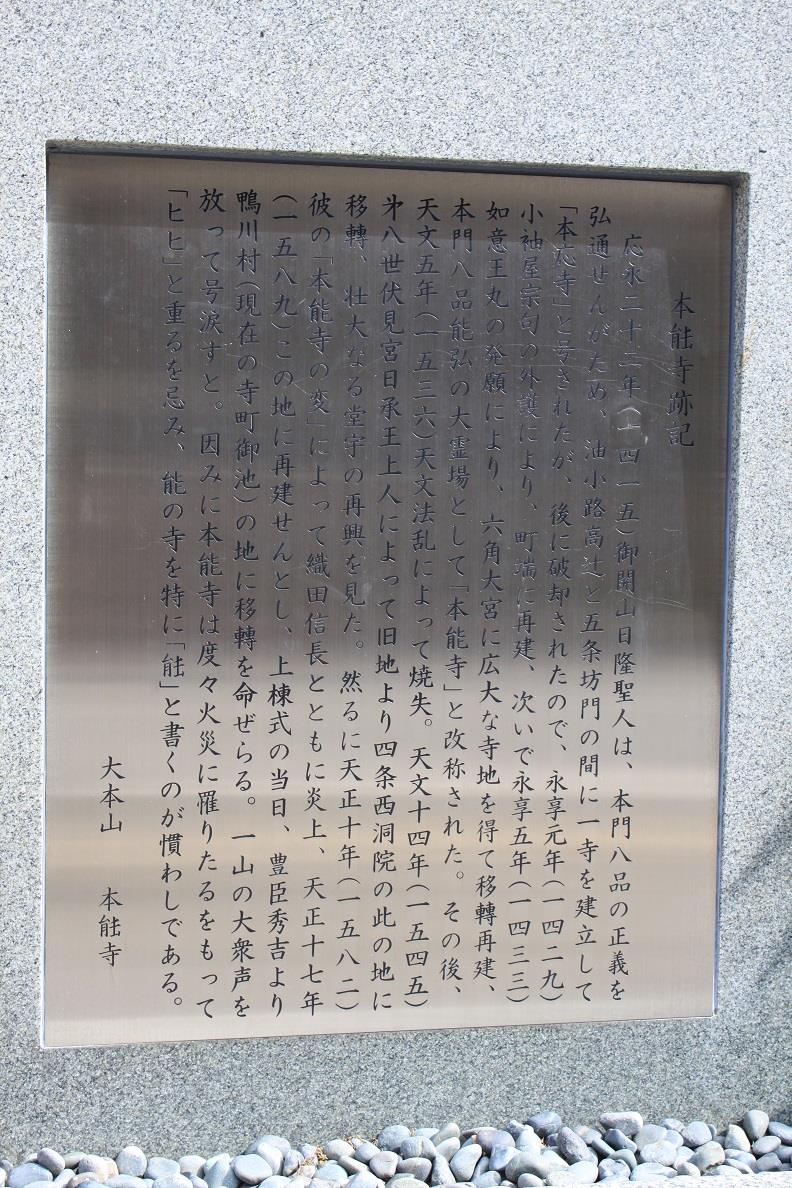 本䏻寺跡記
応永二十二年(一四一五)御開山日隆聖人は、本門八品の正義を
弘通せんがため、油小路高辻と五条坊門の間に一寺を建立して
「本応寺」と号されたが、後に破却されたので、永享元年(一四二九)
小袖屋宗句の外護により、町端に再建、次いで永享五年(一四三三)
如意王丸の発願により、六角大宮に広大な寺地を得て移轉再建、
本門八品能弘の大霊場として「本能寺」と改称された。その後、
天文五年(一五三六)天文法乱によって焼失。天文十四年(一五四五)
㐧八世伏見宮日承王上人によって旧地より四条西洞院の此の地に
移轉、壮大なる堂宇の再興を見た。然るに天正十年(一五八二)
彼の「本能寺の変」によって織田信長とともに炎上、天正十七年
(一五八九)この地に再建せんとし、上棟式の当日、豊臣秀吉より
鴨川村(現在の寺町御池)の地に移轉を命ぜらる。一山の大衆声を
放って号涙すと。因みに本能寺は度々火災に罹りたるをもって
「ヒヒ」と重るを忌み、能の寺を特に「䏻」と書くのが慣わしである。
大本山 本䏻寺